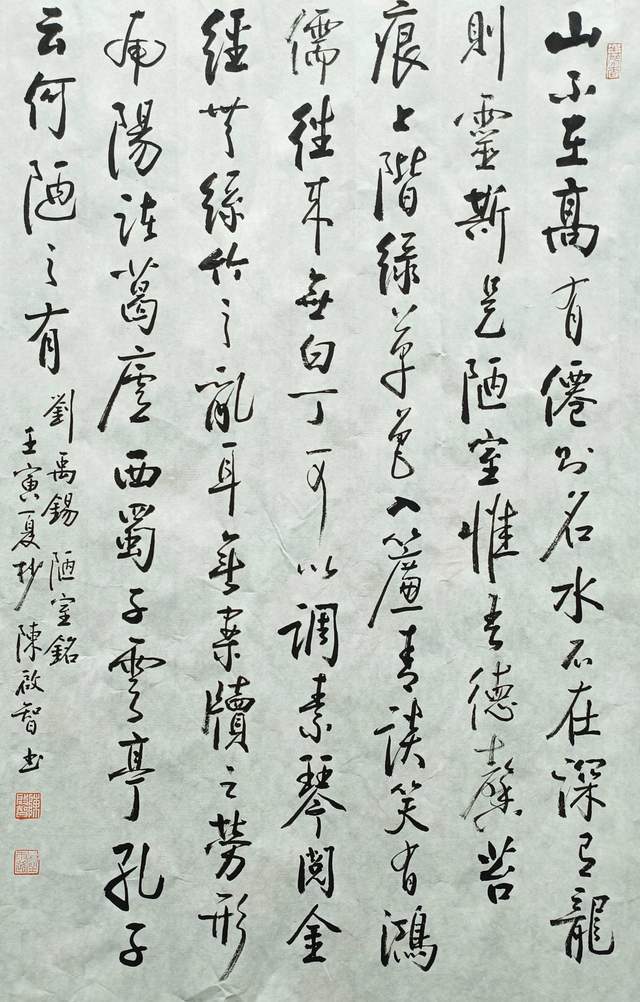 山不在高有僊則名水不在深有龍
則靈斯是陋室惟吾德馨苔
痕上階綠草色入簾青談笑有鴻
儒往來無白丁可以調素琴閱金
經無絲竹之亂耳無案牘之勞形
南陽諸葛廬西蜀子雲亭孔子
云何陋之有
劉禹錫 陋室銘
壬寅夏杪 陳啟智書